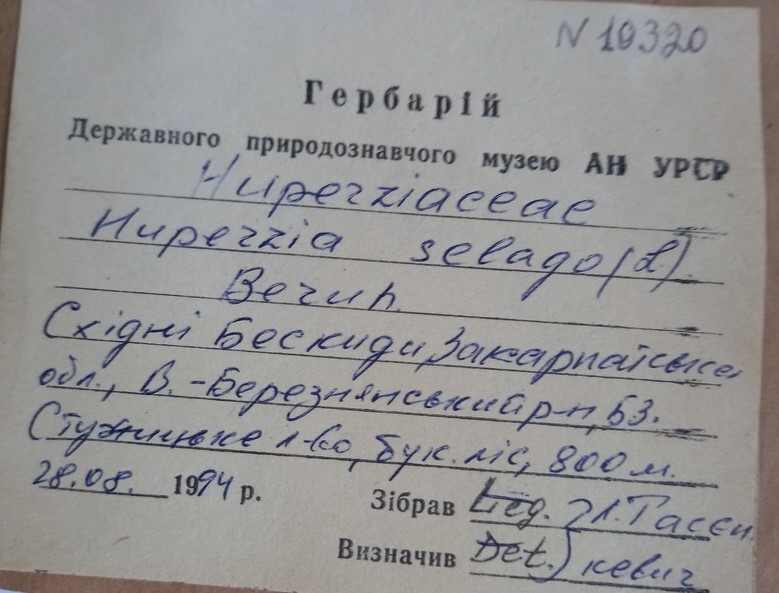 N 19320
Гербарій
Державного природознавчого музею АН УРСР
Huperziaceae
Huperzia selago (L).
Bernh.
Східні Бескиди, Закарпатська
обл., В.-Березнянський р-н, 53.
Стужицьке л-во, бук. ліс, 800 м.
28.08. 1994 р.
Зібрав Lieg. Тасєн
Визначив Det.) кевич